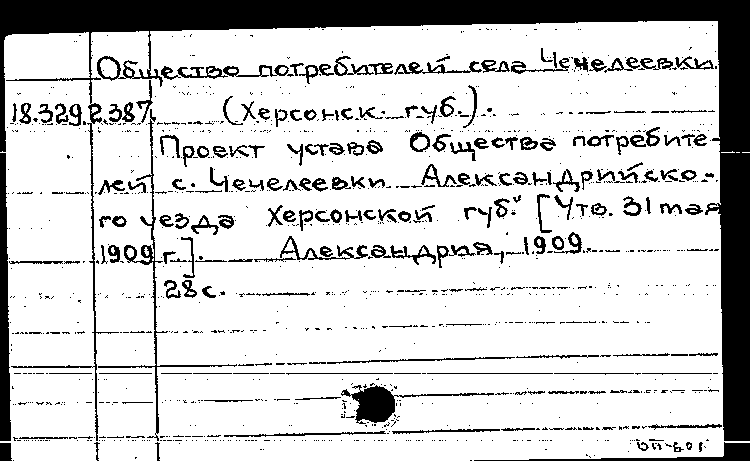 Общество потребителей села Чечелеевки
18.329.2.387. (Херсонск. губ.).
Проект устава Общества потребите-
лей с. Чечелеевки Александрийско-
го уезда Херсонской губ. [Утв. 31 мая
1909 г.]. Александрия, 1909.
28 с.